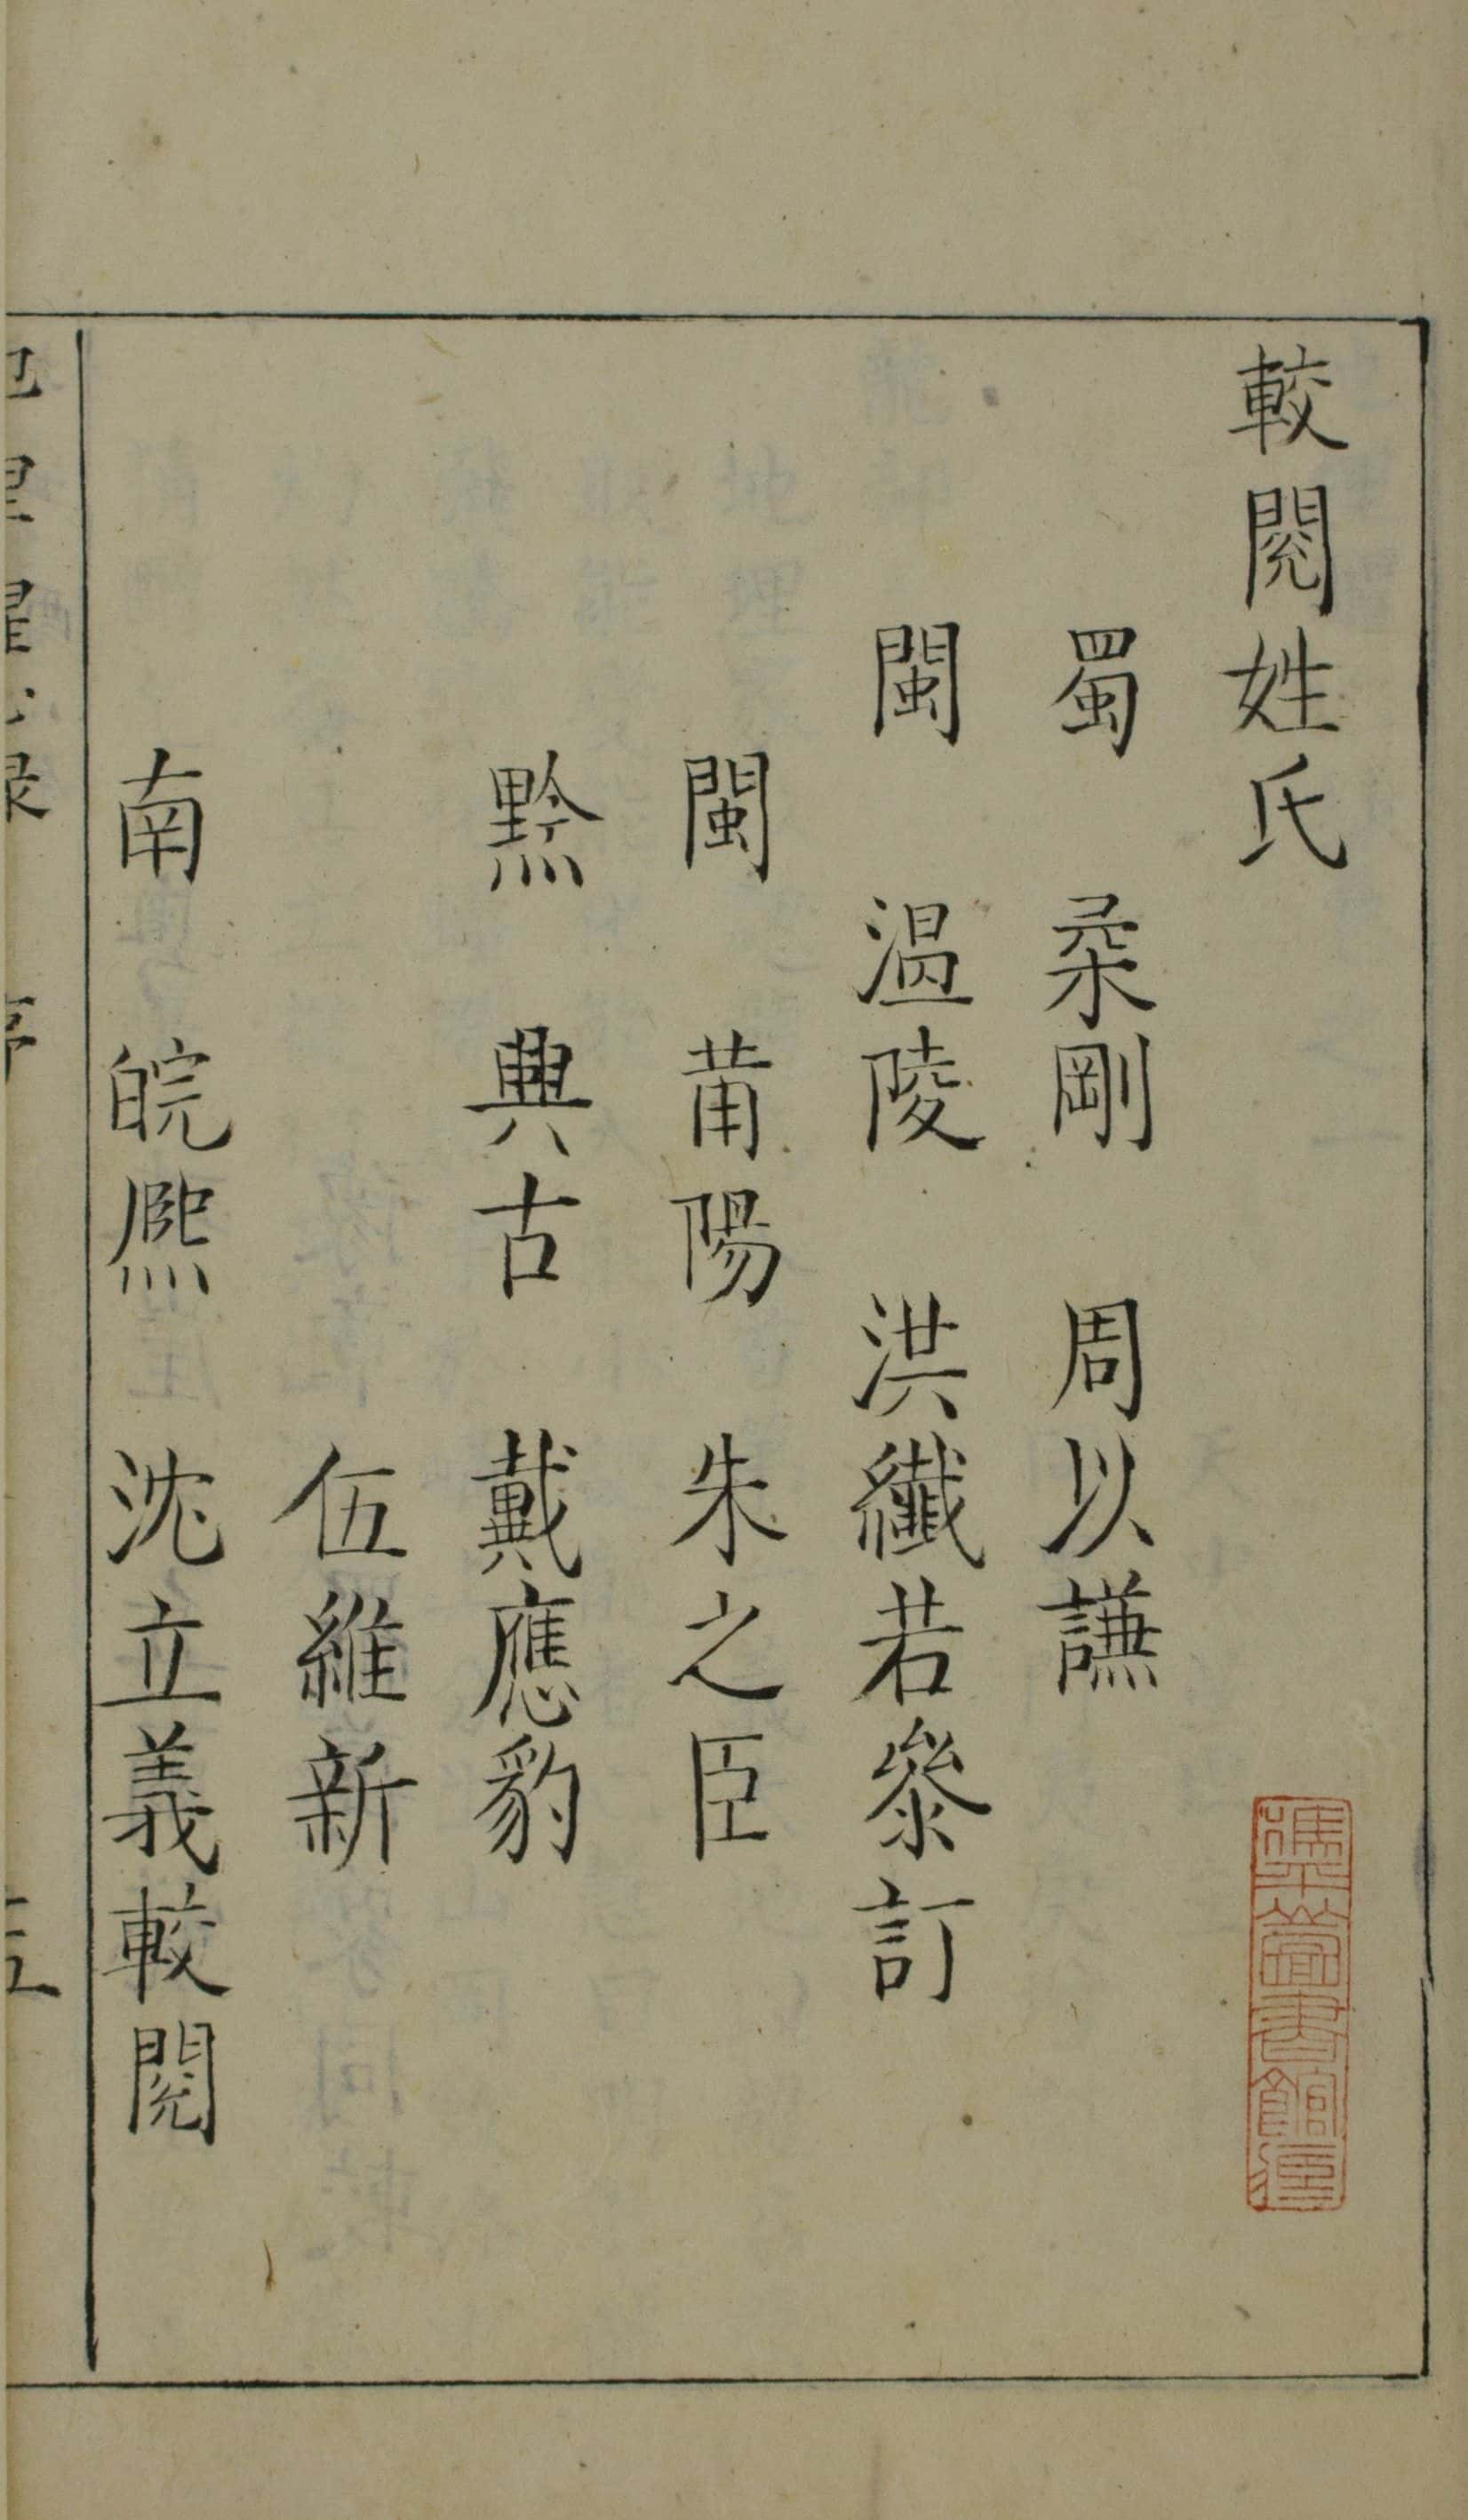 較閱姓氏
蜀 桑剛 周以謙
閩 温陵 洪纖若參訂
閩 莆陽 朱之臣
黔 興古 戴應豹
伍維新
南 皖熈 沈立義較閱